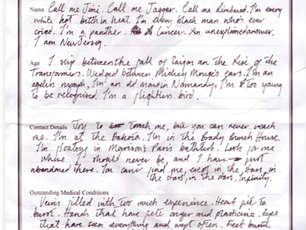 Name Call me Jimi. Call me Jagger. Call me Rimbaud. I'm every
white hot bitch in heat. I'm every black man who's ever
cried. I'm a panther. Cancer. An unexplained answer.
I am New Jersey.
Age I slip between the fall of Saigon and the Rise of the
Transformers. Wedged between Mickey Mouse's ears. I'm an
ageless nymph, I'm an old man in Normandy, I'm too young
to be recognised. I'm a flightless bird.
Contact Details Try to touch me, but you can never reach
me. I'm at the Bakehouse. I'm in the Brady Bunch House
I'm floating in Morrison's Paris bathtub. Look for me
where I should never be, and I have just
abandoned there. You can't find me, except in the bars, in
the stars, in the stars, Infinity.
Outstanding Medical Conditions
Veins filled with too much experience. Heart fit to
burst. Hands that have felt anger and and eyes
that have seen everything and wept often. Feet burnt